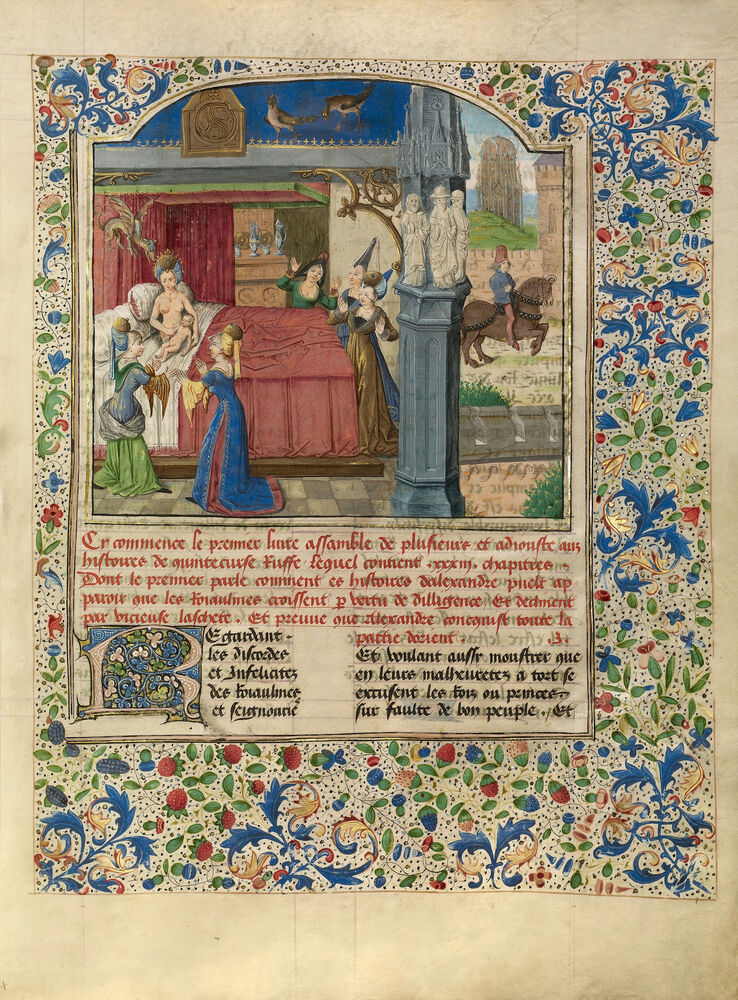 Cy commence le premier liure assamble de plusieurs et adiouste aux
histoires de quinte curse Ruffe. lequel contient .xxxiii. chapitres.
Dont le premier parle comment es histoires dalexandre puelt ap
paroir que les Roiaulmes croissent p vertu de dilligence. Et declinent
par vicieuse laschete. Et preuue que Alexandre conquist toute la
partie dorient .
REgardant
les discordes
et Infelicitez
des Roiaulmes
et seignourie
Et voulant aussy monstrer que
en leurs malheuretez a tort se
excusent les Roix ou princes
sur faulte de bon peuple . Et